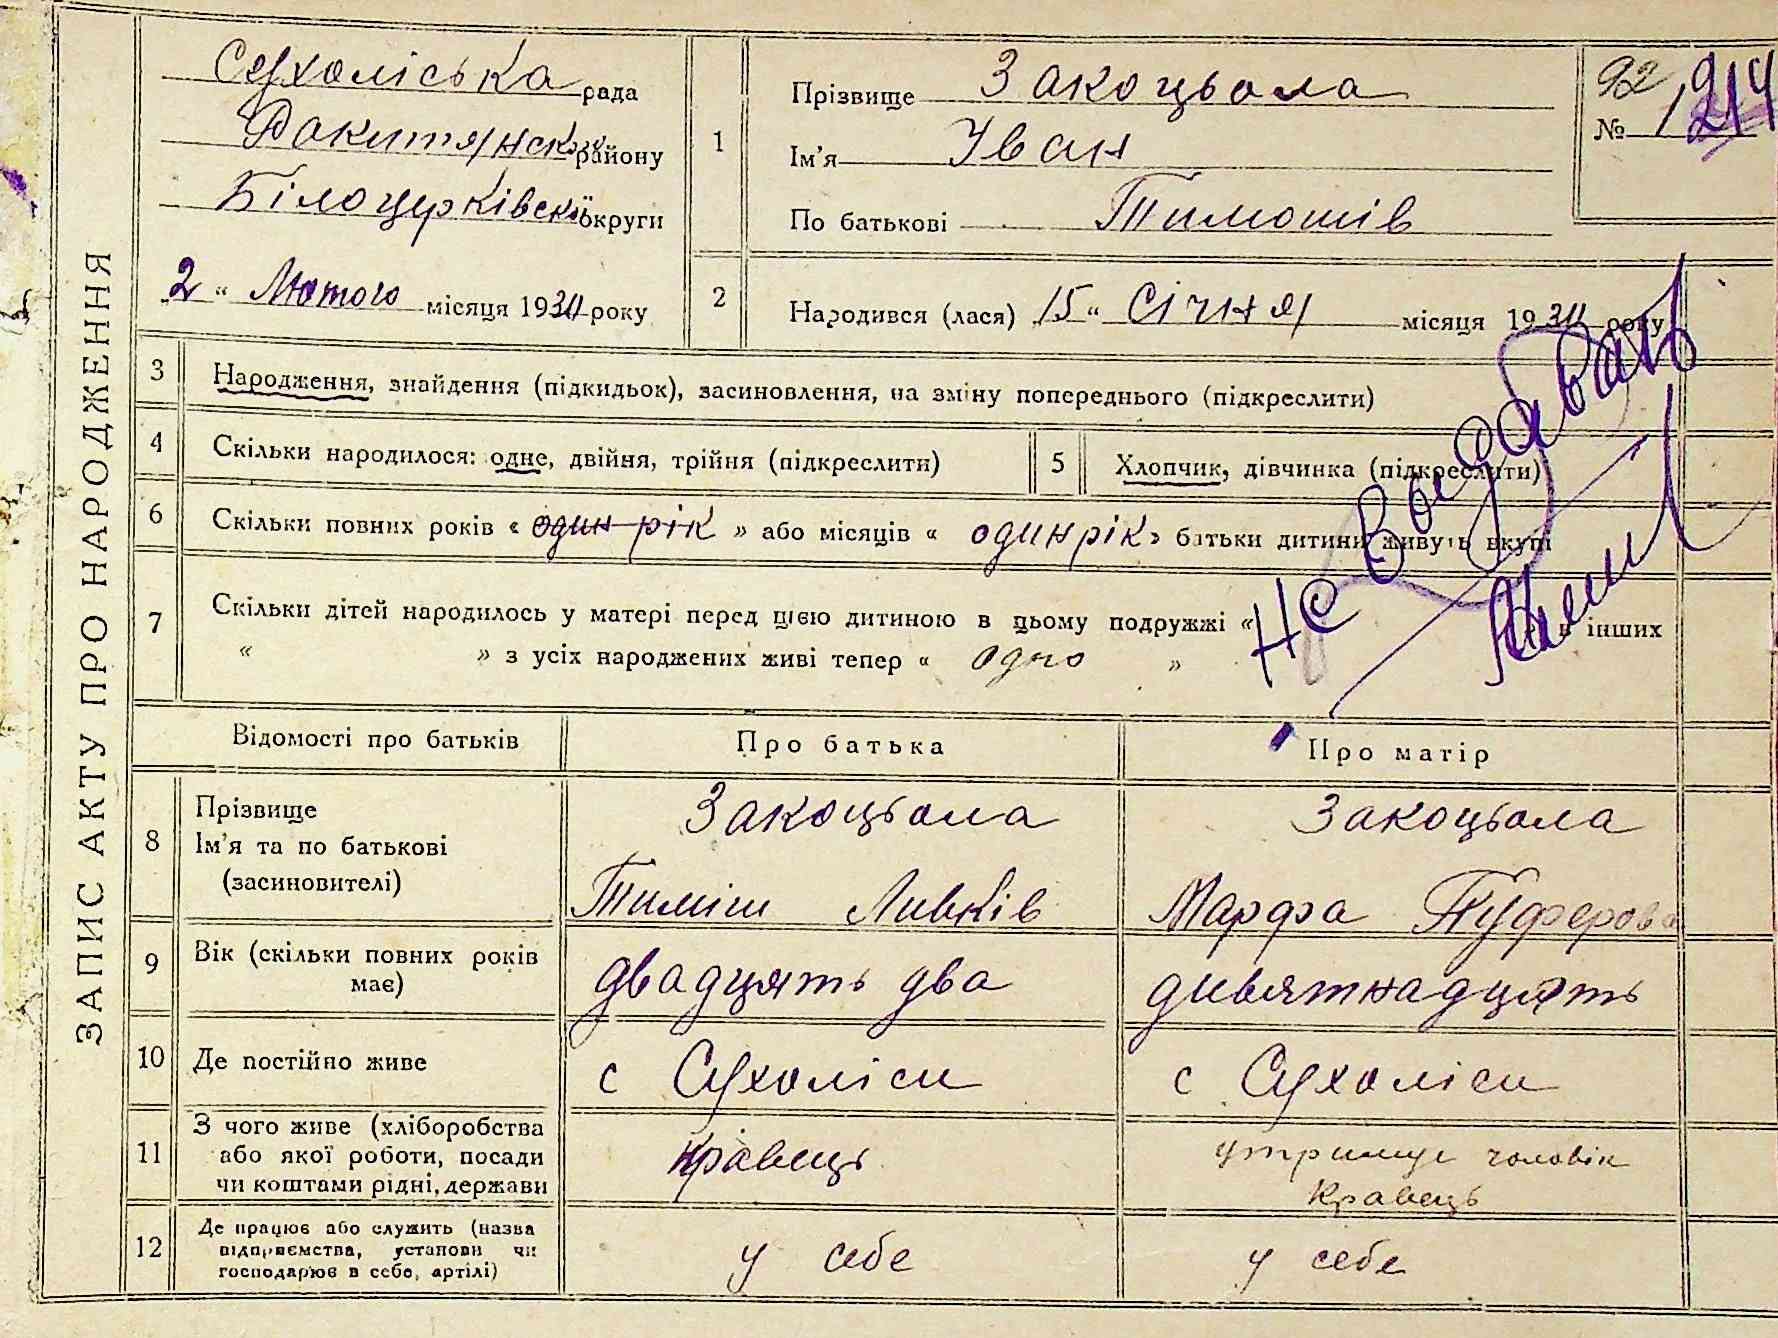 ЗАПИС АКТУ ПРО НАРОДЖЕННЯ
Сухоліська рада
Ракитянськ району
Білоцерківськ округи
"2" Лютого місяця 1930 року
1
Прізвище Закоцьола
Ім'я Іван
По батькові Тимошів
92
№ 1
214
2
Народився (лася) "15" Січня місяця 1930 року
3
Народження, знайдення (підкидьок), засиновлення, на зміну попереднього (підкреслити)
4
Скільки народилося: одне, двійня, трійня (підкреслити)
5
Хлопчик, дівчинка (підкреслити)
6
Скільки повних років « один рік » або місяців « один рік » батьки дитини живуть вкупі
7
Скільки дітей народилось у матері перед цією дитиною в цьому подружжі « в інших
« » з усіх народжених живі тепер « одно »
Не
Відомості про батьків
Про батька
Про матір
8
Прізвище
Ім'я та по батькові
(засиновителі)
Закоцьола
Тиміш Ливків
Закоцьола
Марфа Нуферова
9
Вік (скільки повних років
має)
двадцять два
дивятнадцять
10
Де постійно живе
с Сухоліси
с Сухоліси
11
З чого живе (хліборобства
або якої роботи, посади
чи коштами рідні, держави
Кравець
утримує чоловік
Кравець
12
Де працює або служить (назва
підприємства, установи чи
господарює в себе, артілі)
у себе
у себе